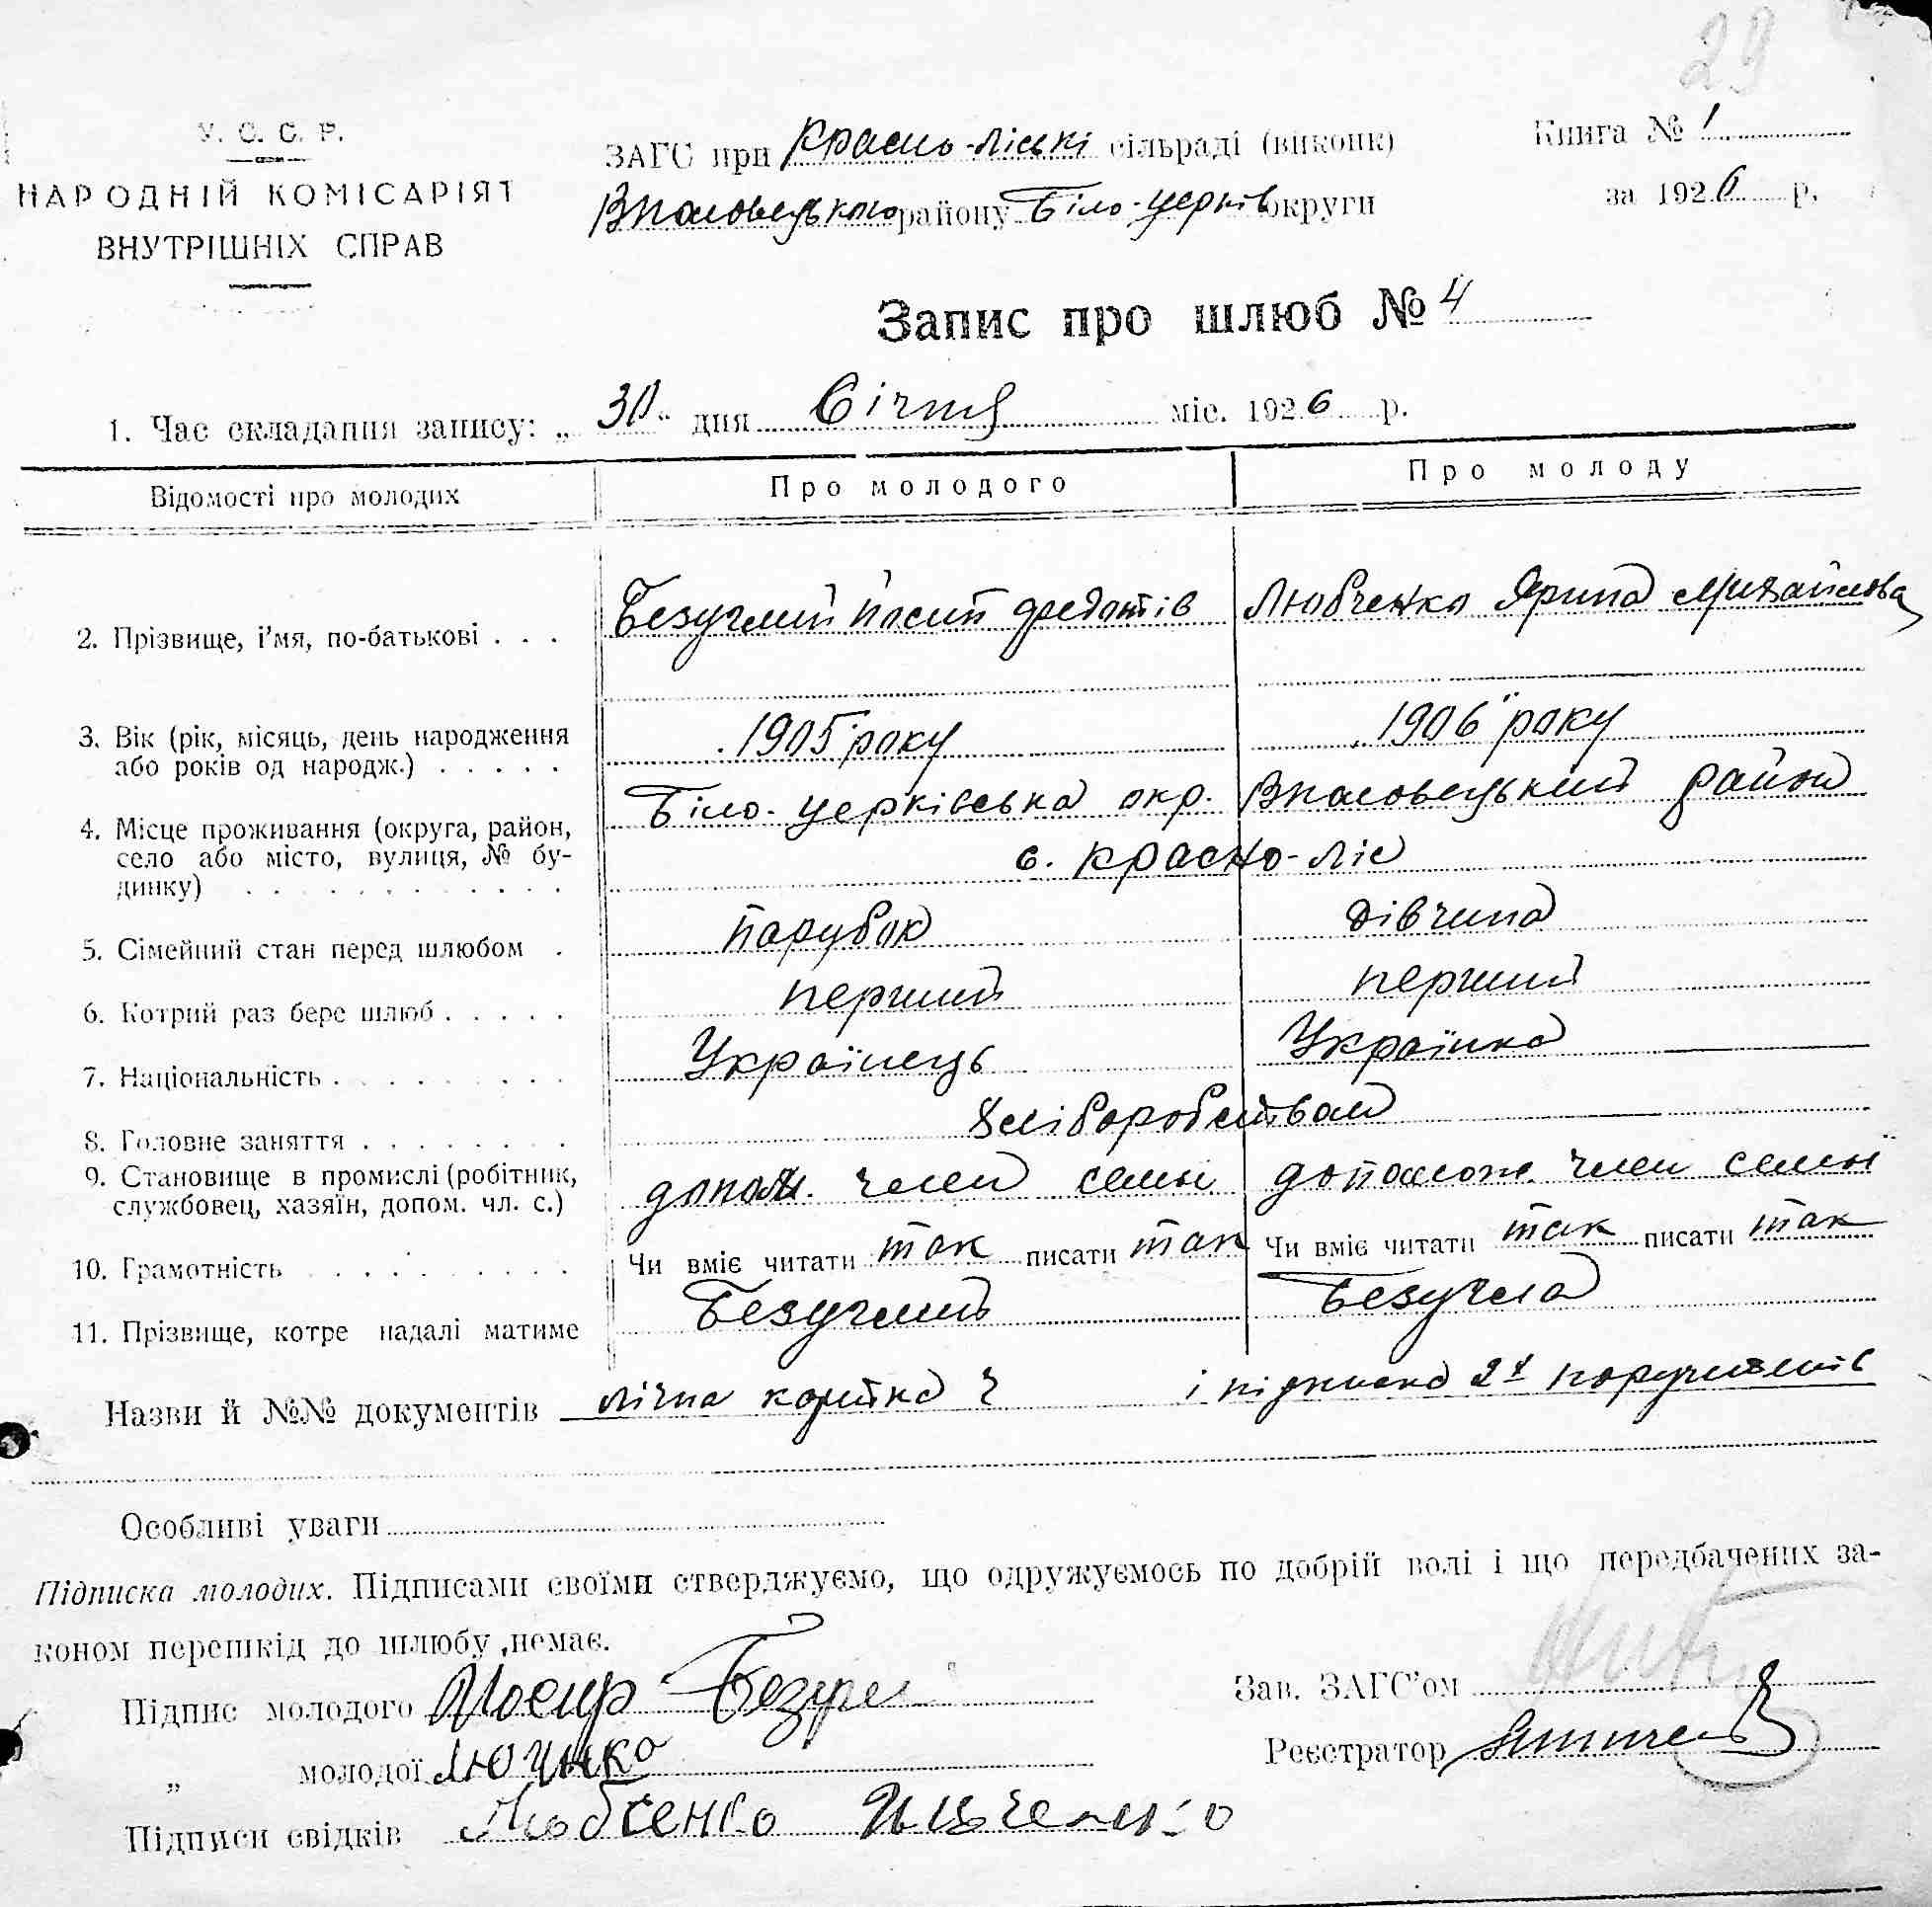 29
У. С. С. Р.
НАРОДНІЙ КОМІСАРІЯТ
ВНУТРІШНІХ СПРАВ
ЗАГС при Красно-ліські сільраді (виконк)
району Біло-церків округи
Книга № 1
за 1926 р.
Запис про шлюб № 4
1. Час складання запису: „30" дня Січня міс. 1926 р.
Відомості про молодих Про молодого Про молоду
2. Прізвище, і'мя, по-батькові . . . Безуглий Йосип Федотів Любченко Ярина Михайлова
3. Вік (рік, місяць, день народження
або років од народж.) . . . . . 1905 року 1906 року
4. Місце проживання (округа, район,
село або місто, вулиця, № бу-
динку) . . . . . . . . . . . Біло-церківська окр. район
с. Красно-ліс
5. Сімейний стан перед шлюбом . парубок дівчина
6. Котрий раз бере шлюб . . . . . перший перший
7. Національність . . . . . . . . . Українець Українка
8. Головне заняття . . . . . . . . Хліборобством
9. Становище в промислі (робітник,
службовец, хазяїн, допом. чл. с.) допом. член семьи допомож. член семьи
10. Грамотність . . . . . . . . . . Чи вміє читати так писати так Чи вміє читати так писати так
11. Прізвище, котре надалі матиме Безуглий Безугла
Назви й №№ документів лічна картка ч і підписка 2х поручителів
Особливі уваги
Підписка молодих. Підписами своїми стверджуємо, що одружуємось по добрій волі і що передбачених за-
коном перешкід до шлюбу немає.
Підпис молодого
„ молодої
Зав. ЗАГС'ом
Реєстратор
Підписи свідків Любченко